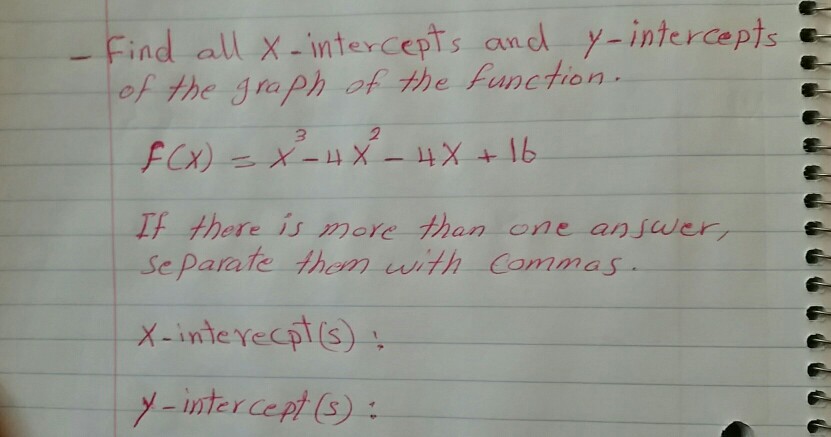 - Find all x-intercepts and y-intercepts
of the graph of the function.
f(x) = x³-4x²-4x + 16
If there is more than one answer,
separate them with commas.
X-interecpt(s) :
y-intercept(s) :